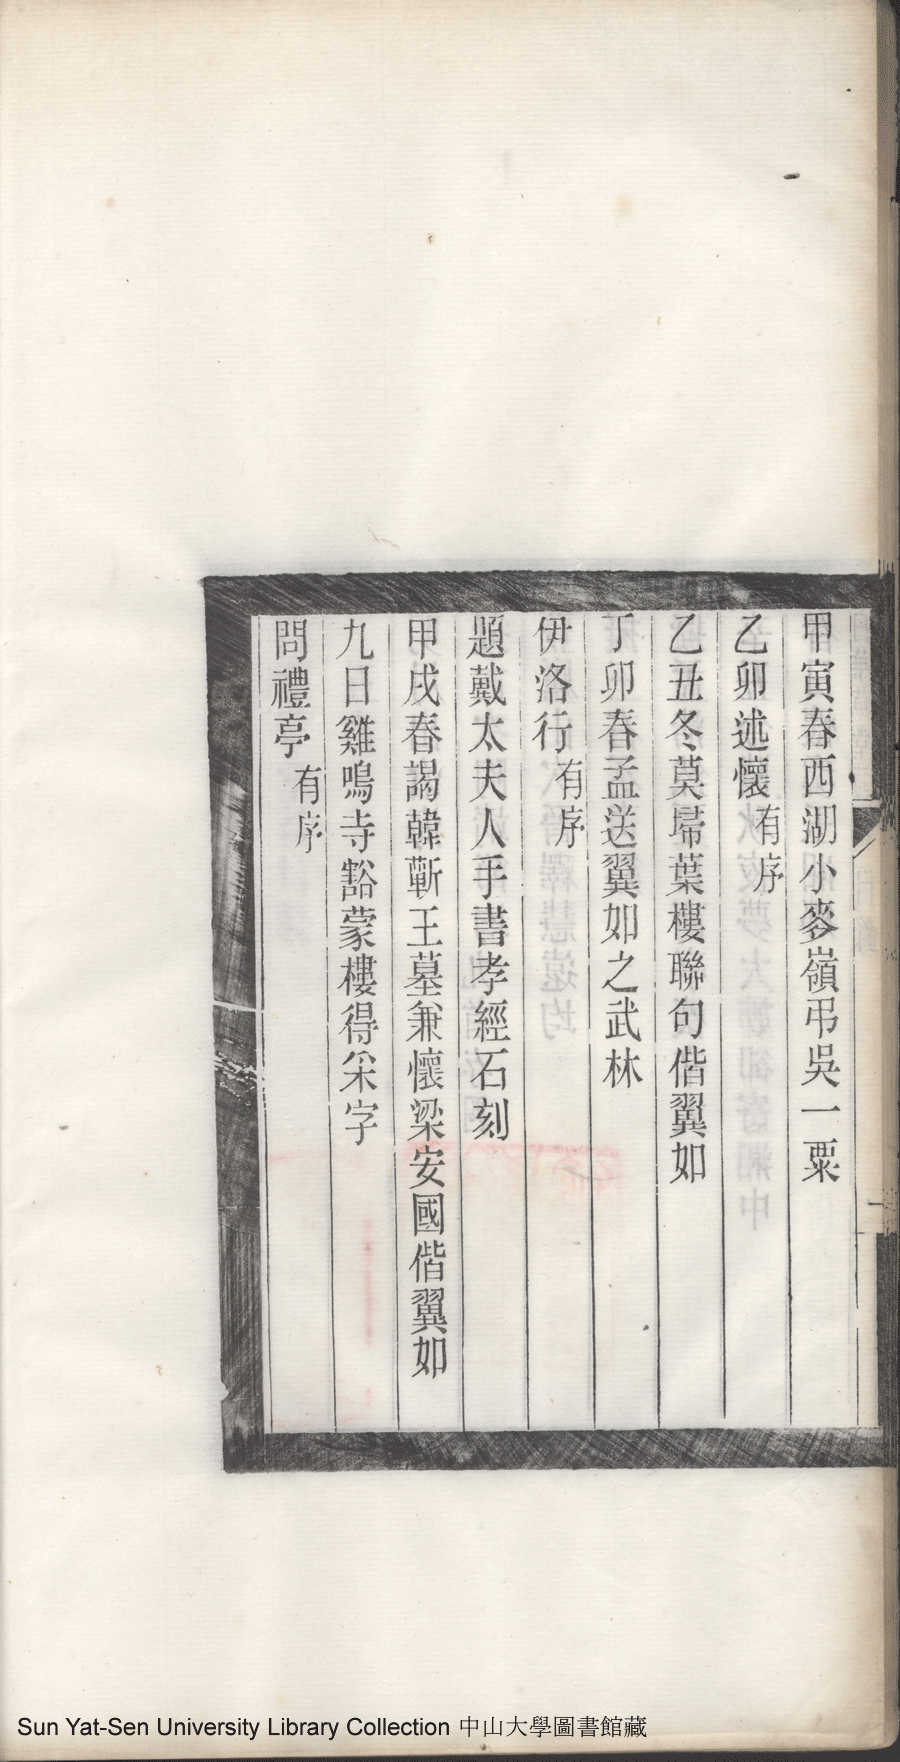 甲寅春西湖小麥嶺弔吳一粟
乙卯述懷有序
乙丑冬莫埽葉樓聯句偕翼如
丁卯春孟送翼如之武林
伊洛行有序
題戴太夫人手書孝經石刻
甲戌春謁韓蘄王墓兼懷梁安國偕翼如
九日雞鳴寺豁蒙樓得氺字
問禮亭有序
Sun Yat-Sen University Library Collection 中山大學圖書館藏